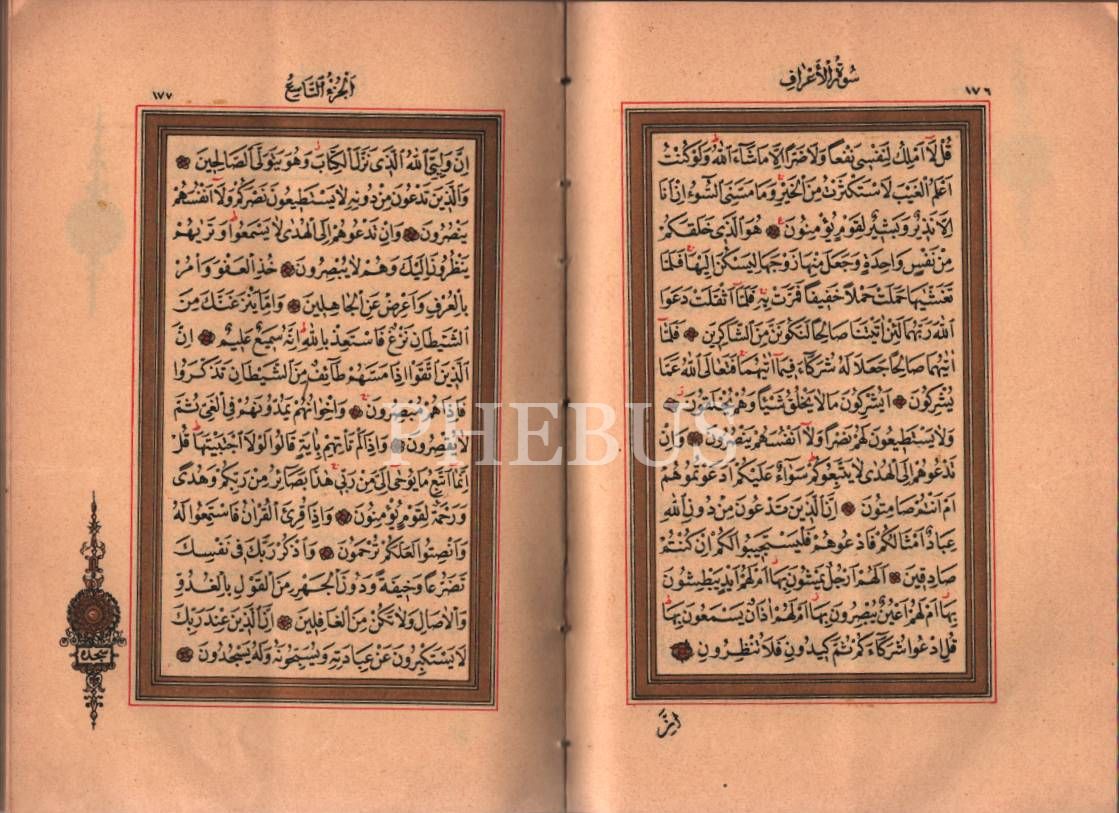 سُورَةُ الْأَعْرَافِ
١٧٦
قُلْ لَٓا اَمْلِكُ لِنَفْسٖى نَفْعًا وَلَا ضَرًّا اِلَّا مَا شَٓاءَ اللّٰهُ وَلَوْ كُنْتُ
اَعْلَمُ الْغَيْبَ لَاسْتَكْثَرْتُ مِنَ الْخَيْرِ وَمَا مَسَّنِىَ السُّٓوءُ اِنْ اَنَا
اِلَّا نَذٖيرٌ وَبَشٖيرٌ لِقَوْمٍ يُؤْمِنُونَ هُوَ الَّذٖى خَلَقَكُمْ
مِنْ نَفْسٍ وَاحِدَةٍ وَجَعَلَ مِنْهَا زَوْجَهَا لِيَسْكُنَ اِلَيْهَا فَلَمَّا
تَغَشّٰيهَا حَمَلَتْ حَمْلًا خَفٖيفًا فَمَرَّتْ بِهٖ فَلَمَّٓا اَثْقَلَتْ دَعَوَا
اللّٰهَ رَبَّهُمَا لَئِنْ اٰتَيْتَنَا صَالِحًا لَنَكُونَنَّ مِنَ الشَّاكِرٖينَ فَلَمَّٓا
اٰتٰيهُمَا صَالِحًا جَعَلَا لَهُ شُرَكَٓاءَ فٖيمَٓا اٰتٰيهُمَا فَتَعَالَى اللّٰهُ عَمَّا
يُشْرِكُونَ اَيُشْرِكُونَ مَا لَا يَخْلُقُ شَيْـًٔا وَهُمْ يُخْلَقُونَ
وَلَا يَسْتَطٖيعُونَ لَهُمْ نَصْرًا وَلَٓا اَنْفُسَهُمْ يَنْصُرُونَ وَاِنْ
تَدْعُوهُمْ اِلَى الْهُدٰى لَا يَتَّبِعُوكُمْ سَوَٓاءٌ عَلَيْكُمْ اَدَعَوْتُمُوهُمْ
اَمْ اَنْتُمْ صَامِتُونَ اِنَّ الَّذٖينَ تَدْعُونَ مِنْ دُونِ اللّٰهِ
عِبَادٌ اَمْثَالُكُمْ فَادْعُوهُمْ فَلْيَسْتَجٖيبُوا لَكُمْ اِنْ كُنْتُمْ
صَادِقٖينَ اَلَهُمْ اَرْجُلٌ يَمْشُونَ بِهَٓا اَمْ لَهُمْ اَيْدٍ يَبْطِشُونَ
بِهَٓا اَمْ لَهُمْ اَعْيُنٌ يُبْصِرُونَ بِهَٓا اَمْ لَهُمْ اٰذَانٌ يَسْمَعُونَ بِهَا
قُلِ ادْعُوا شُرَكَٓاءَكُمْ ثُمَّ كٖيدُونِ فَلَا تُنْظِرُونِ
اِنَّ
اَلْجُزْءُ التَّاسِعُ
١٧٧
اِنَّ وَلِيِّىَ اللّٰهُ الَّذٖى نَزَّلَ الْكِتَابَ وَهُوَ يَتَوَلَّى الصَّالِحٖينَ
وَالَّذٖينَ تَدْعُونَ مِنْ دُونِهٖ لَا يَسْتَطٖيعُونَ نَصْرَكُمْ وَلَٓا اَنْفُسَهُمْ
يَنْصُرُونَ وَاِنْ تَدْعُوهُمْ اِلَى الْهُدٰى لَا يَسْمَعُوا وَتَرٰيهُمْ
يَنْظُرُونَ اِلَيْكَ وَهُمْ لَا يُبْصِرُونَ خُذِ الْعَفْوَ وَاْمُرْ
بِالْعُرْفِ وَاَعْرِضْ عَنِ الْجَاهِلٖينَ وَاِمَّا يَنْزَغَنَّكَ مِنَ
الشَّيْطَانِ نَزْغٌ فَاسْتَعِذْ بِاللّٰهِ اِنَّهُ سَمٖيعٌ عَلٖيمٌ اِنَّ
الَّذٖينَ اتَّقَوْا اِذَا مَسَّهُمْ طَٓائِفٌ مِنَ الشَّيْطَانِ تَذَكَّرُوا
فَاِذَا هُمْ مُبْصِرُونَ وَاِخْوَانُهُمْ يَمُدُّونَهُمْ فِى الْغَىِّ ثُمَّ
لَا يُقْصِرُونَ وَاِذَا لَمْ تَاْتِهِمْ بِاٰيَةٍ قَالُوا لَوْلَا اجْتَبَيْتَهَا قُلْ
اِنَّمَٓا اَتَّبِعُ مَا يُوحٰٓى اِلَىَّ مِنْ رَبّٖى هٰذَا بَصَٓائِرُ مِنْ رَبِّكُمْ وَهُدًى
وَرَحْمَةٌ لِقَوْمٍ يُؤْمِنُونَ وَاِذَا قُرِئَ الْقُرْاٰنُ فَاسْتَمِعُوا لَهُ
وَاَنْصِتُوا لَعَلَّكُمْ تُرْحَمُونَ وَاذْكُرْ رَبَّكَ فٖى نَفْسِكَ
تَضَرُّعًا وَخٖيفَةً وَدُونَ الْجَهْرِ مِنَ الْقَوْلِ بِالْغُدُوِّ
وَالْاٰصَالِ وَلَا تَكُنْ مِنَ الْغَافِلٖينَ اِنَّ الَّذٖينَ عِنْدَ رَبِّكَ
لَا يَسْتَكْبِرُونَ عَنْ عِبَادَتِهٖ وَيُسَبِّحُونَهُ وَلَهُ يَسْجُدُونَ
سجده
PHEBUS